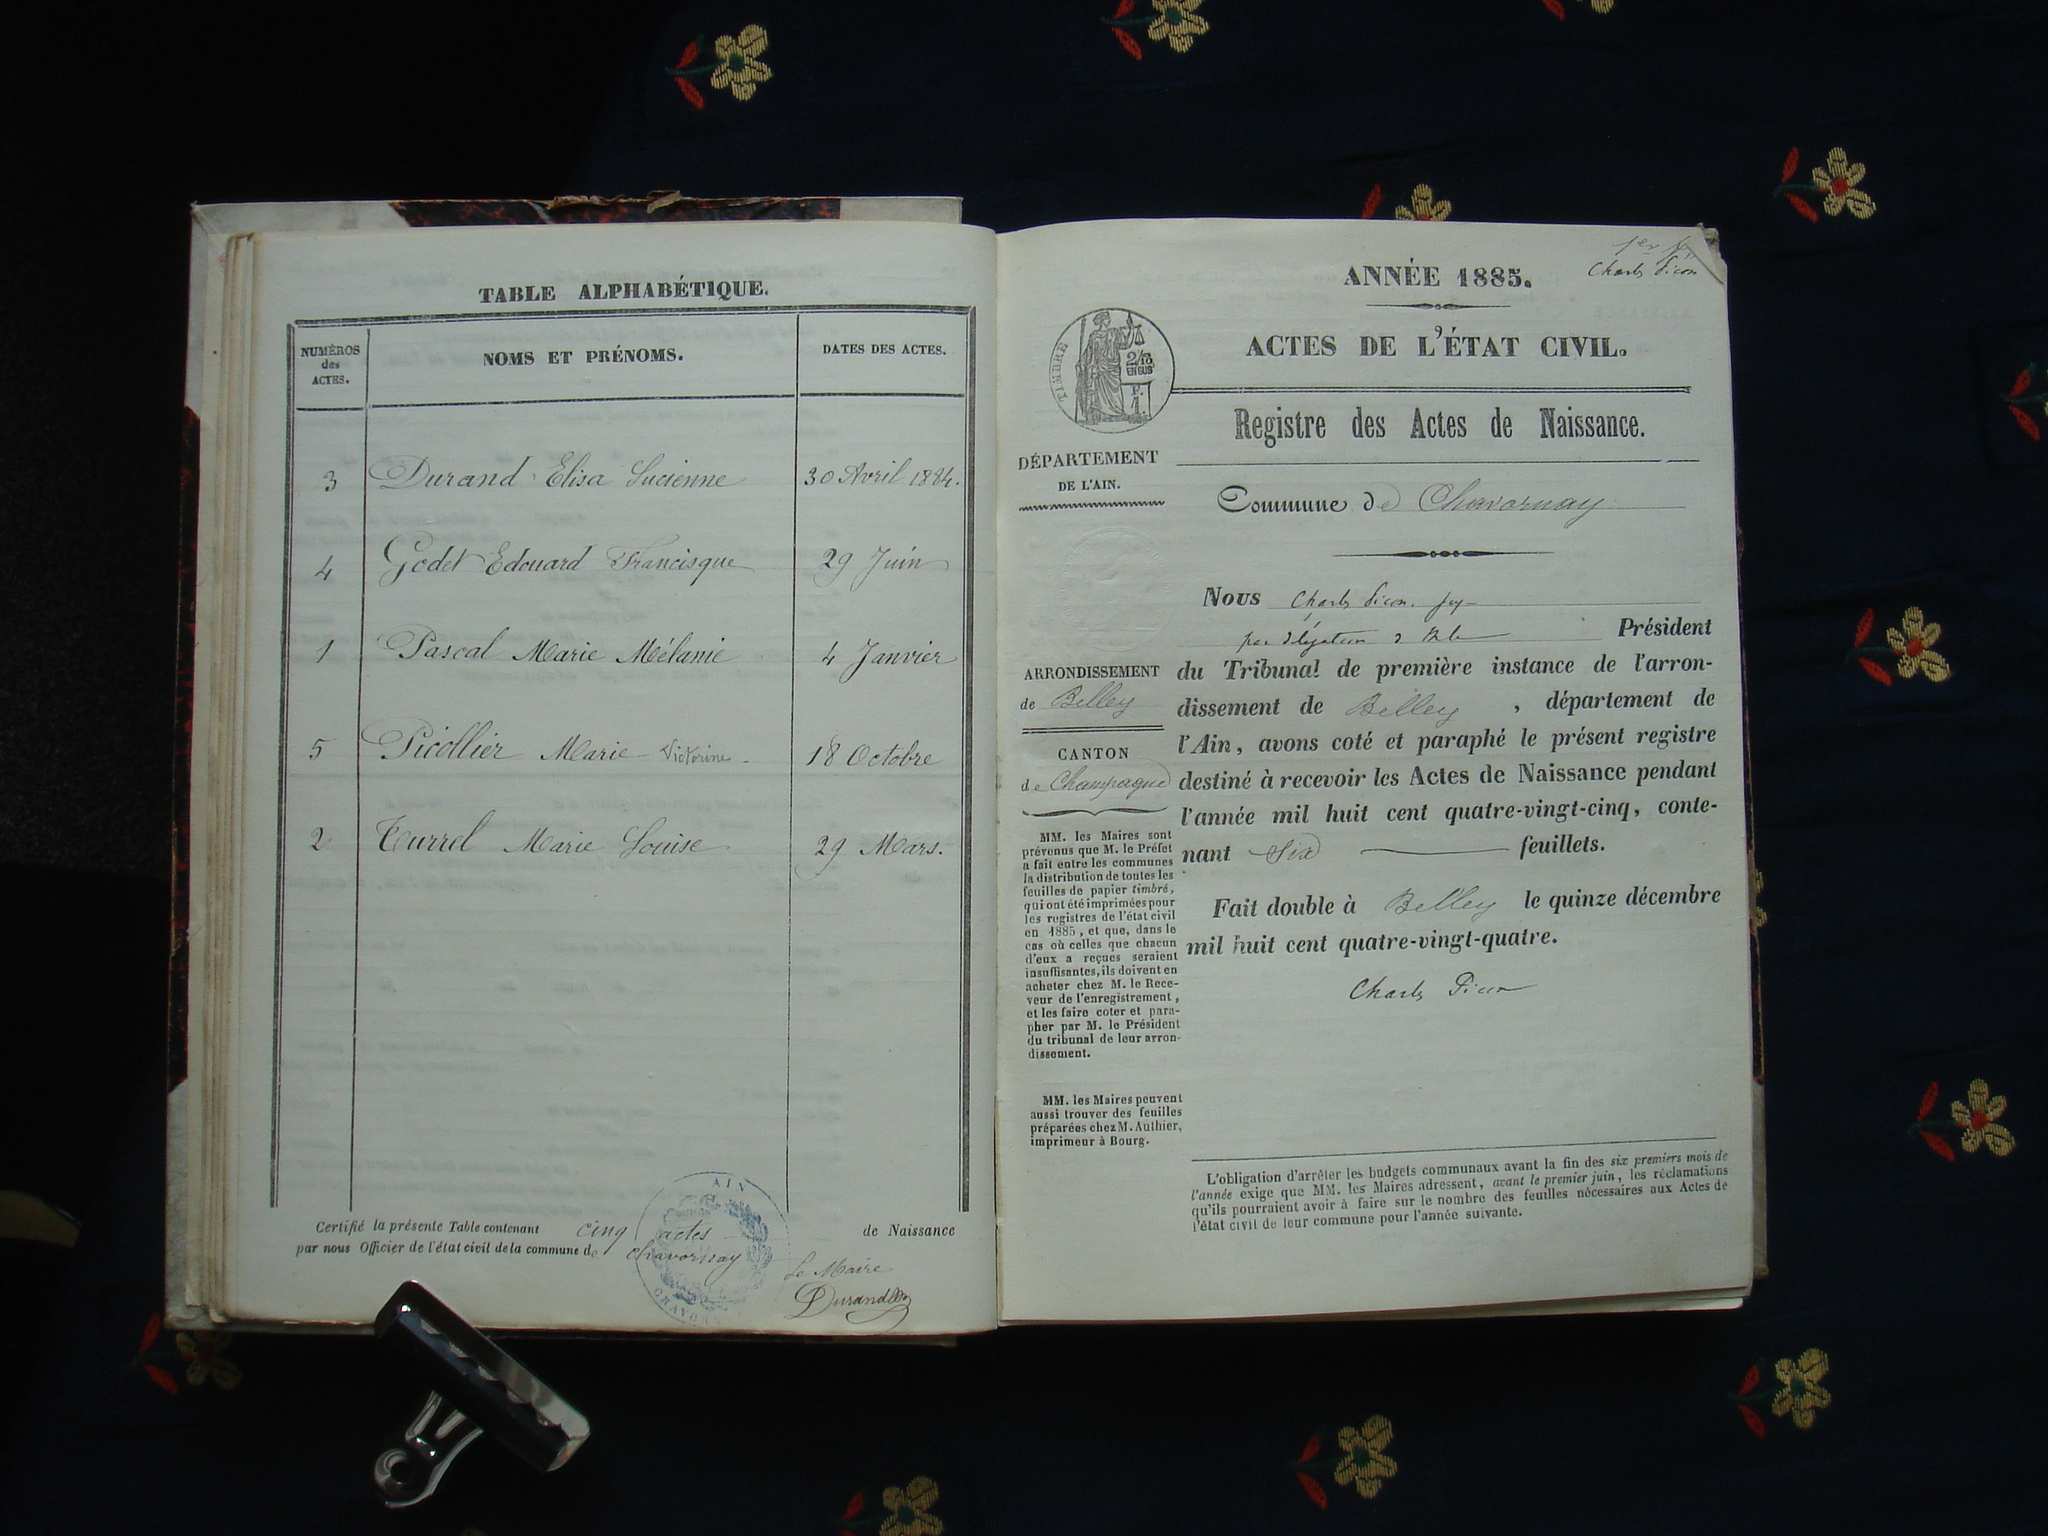 TABLE ALPHABÉTIQUE.
NUMÉROS
des
ACTES.
NOMS ET PRÉNOMS.
DATES DES ACTES.
3 Durand Elisa Lucienne 30 Avril 1884.
4 Godet Edouard Francisque 29 Juin
1 Pascal Marie Mélanie 4 Janvier
5 Picollier Marie Victorine 18 Octobre
2 Turrel Marie Louise 29 Mars.
Certifié la présente Table contenant cinq actes de Naissance
par nous Officier de l'état civil de la commune de Chavornay
AIN
Le Maire
Durand
1er
Charles Picon
ANNÉE 1885.
ACTES DE L'ÉTAT CIVIL.
TIMBRE
2/10
EN SUS
F.
1.
Registre des Actes de Naissance.
DÉPARTEMENT
DE L'AIN.
Commune de Chavornay
Nous Charles Picon
par délégation Président
du Tribunal de première instance de l'arron-
dissement de Belley, département de
l'Ain, avons coté et paraphé le présent registre
destiné à recevoir les Actes de Naissance pendant
l'année mil huit cent quatre-vingt-cinq, conte-
nant Six feuillets.
Fait double à Belley le quinze décembre
mil huit cent quatre-vingt-quatre.
Charles Picon
ARRONDISSEMENT
de Belley
CANTON
de Champagne
MM. les Maires sont
prévenus que M. le Préfet
a fait entre les communes
la distribution de toutes les
feuilles de papier timbré,
qui ont été imprimées pour
les registres de l'état civil
en 1885, et que, dans le
cas où celles que chacun
d'eux a reçues seraient
insuffisantes, ils doivent en
acheter chez M. le Rece-
veur de l'enregistrement,
et les faire coter et para-
pher par M. le Président
du tribunal de leur arron-
dissement.
MM. les Maires peuvent
aussi trouver des feuilles
préparées chez M. Authier,
imprimeur à Bourg.
L'obligation d'arrêter les budgets communaux avant la fin des six premiers mois de
l'année exige que MM. les Maires adressent, avant le premier juin, les réclamations
qu'ils pourraient avoir à faire sur le nombre des feuilles nécessaires aux Actes de
l'état civil de leur commune pour l'année suivante.